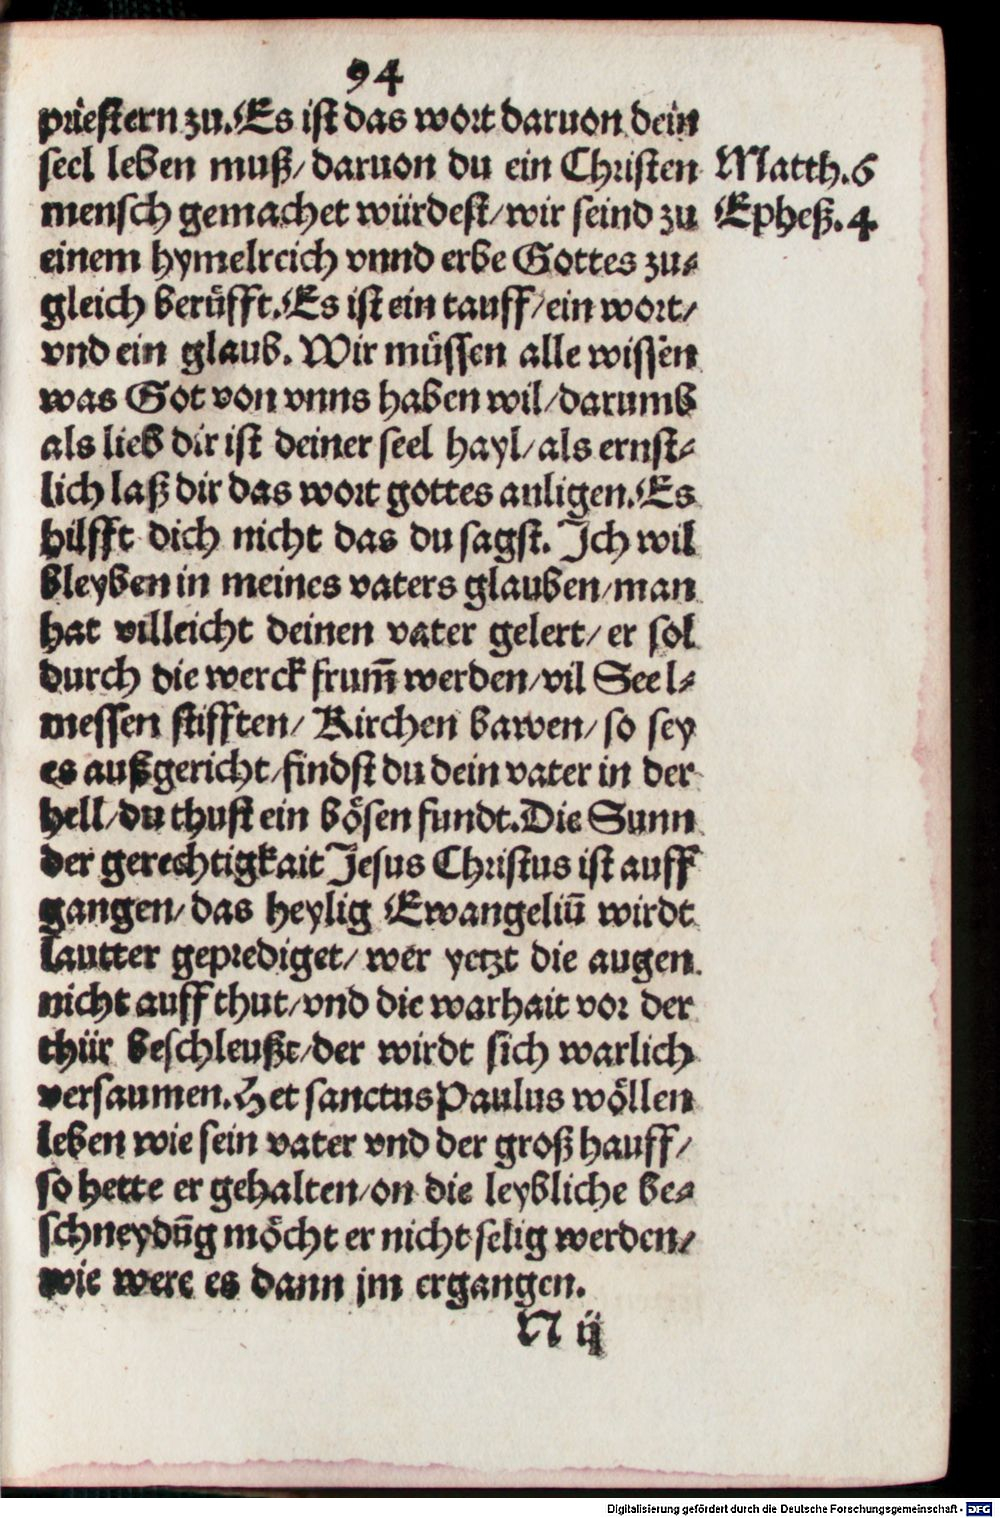 94
priestern zu. Es ist das wort daruon dein
seel leben muß/ daruon du ein Christen
Matth. 6
mensch gemachet würdest/ wir seind zu
Epheß. 4
einem hymelreich vnnd erbe Gottes zu⸗
gleich berüfft. Es ist ein tauff/ ein wort/
vnd ein glaub. Wir müssen alle wissen
was Got von vnns haben wil/ darumb
als lieb dir ist deiner seel hayl/ als ernst⸗
lich laß dir das wort gottes anligen. Es
hilfft dich nicht das du sagst. Ich wil
bleyben in meines vaters glauben/ man
hat villeicht deinen vater gelert/ er sol
durch die werck frum̃ werden/ vil Seel⸗
messen stifften/ Kirchen bawen/ so sey
es außgericht/ findst du dein vater in der
hell/ du thust ein bösen fundt. Die Sunn
der gerechtigkait Jesus Christus ist auff
gangen/ das heylig Ewangeliũ wirdt
lautter geprediget/ wer yetzt die augen
nicht auff thut/ vnd die warhait vor der
thür beschleußt/ der wirdt sich warlich
versaumen. Het sanctus Paulus wöllen
leben wie sein vater vnd der groß hauff/
so hette er gehalten/ on die leybliche be⸗
schneydũg möcht er nicht selig werden/
wie were es dann jm ergangen.
N ij
Digitalisierung gefördert durch die Deutsche Forschungsgemeinschaft - DFG